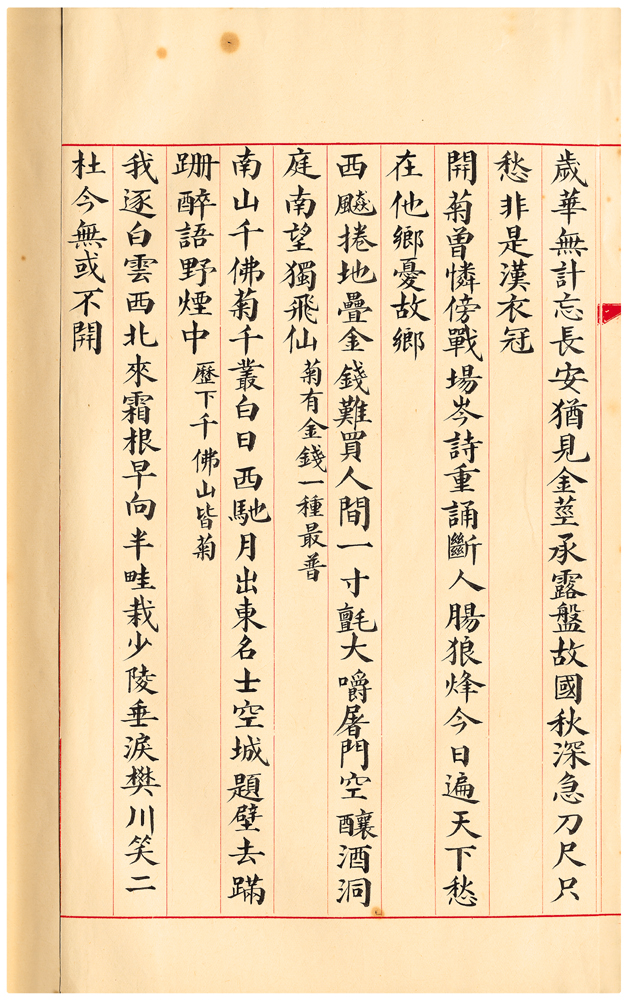 歲華無計忘長安猶見金莖承露盤故國秋深急刀尺只
愁非是漢衣冠
開菊曾憐傍戰場岑詩重誦斷人腸狼烽今日遍天下愁
在他鄉憂故鄉
西飈捲地疊金錢難買人間一寸氈大嚼屠門空釀酒洞
庭南望獨飛仙 菊有金錢一種最普
南山千佛菊千叢白日西馳月出東名士空城題壁去蹣
跚醉語野煙中 歷下千佛山皆菊
我逐白雲西北來霜根早向半畦栽少陵垂淚樊川笑二
杜今無或不開